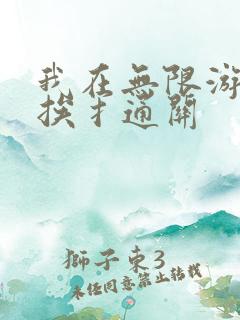 我在無限游
挨才通關
獅子東3
未经同意禁止转载